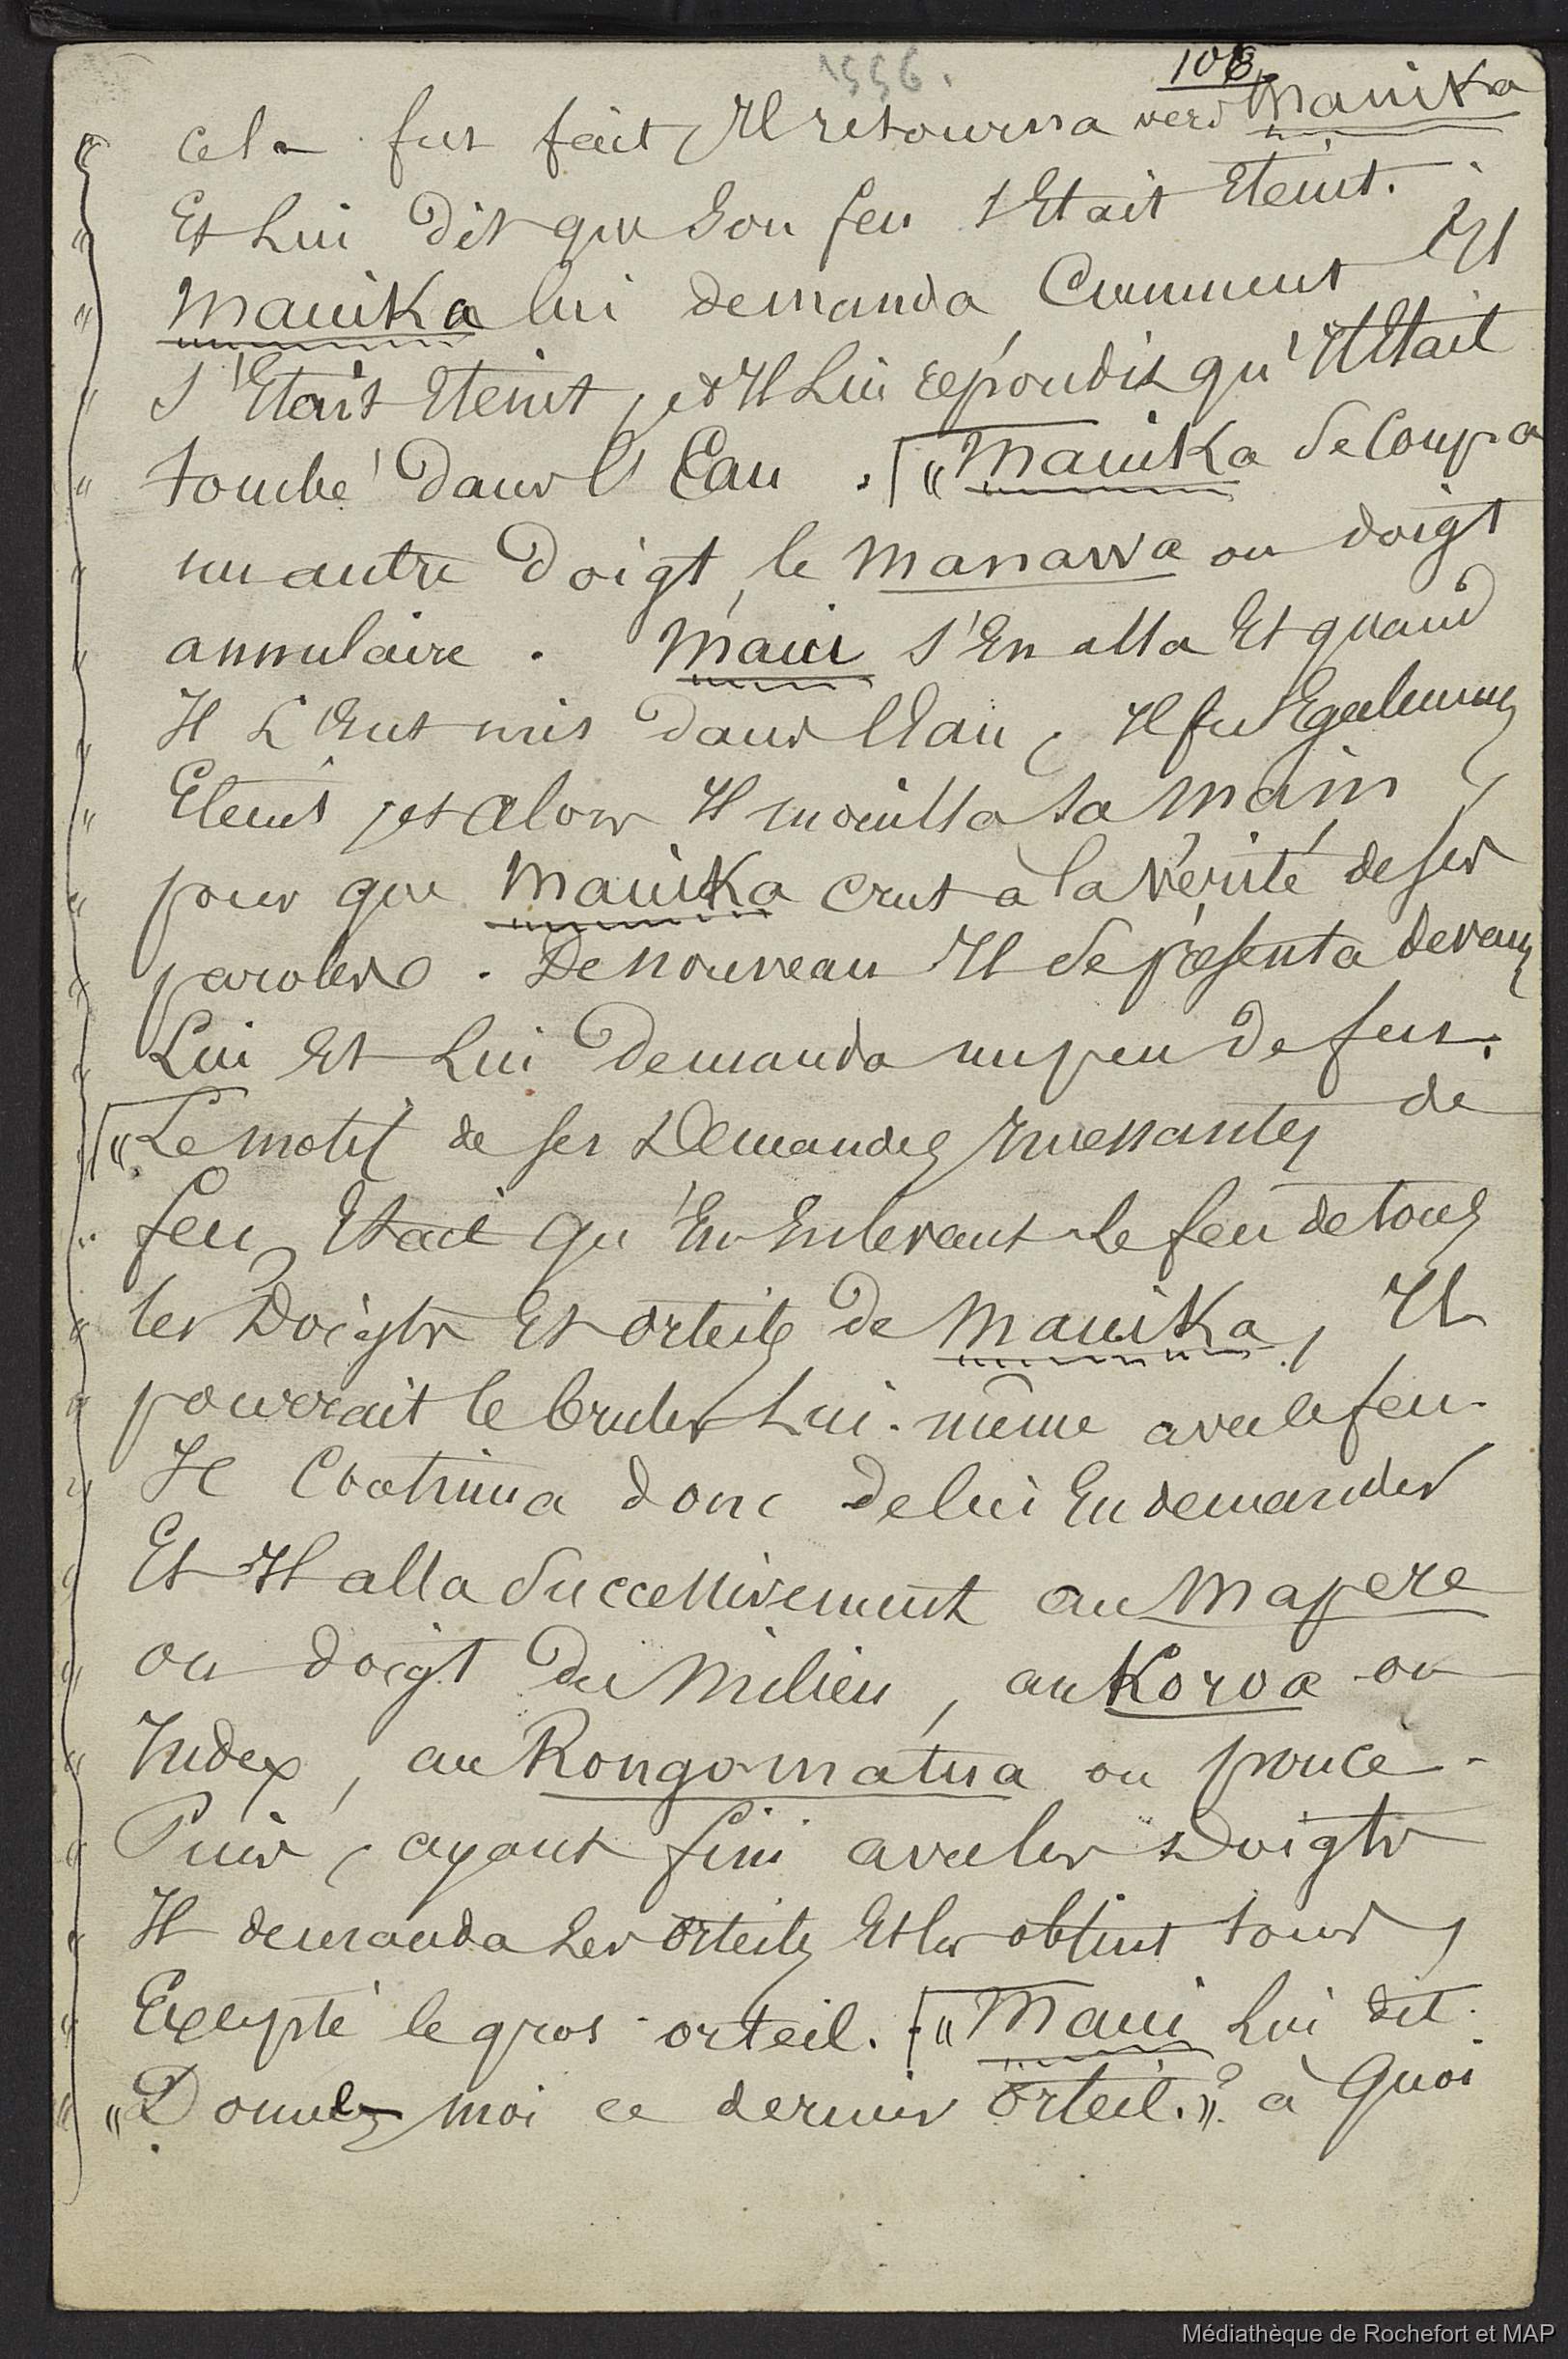 1556.
108.
cela fut fait, Il retourna vers Mauika
Et Lui dit que son feu s'Etait Eteint.
Mauika lui demanda Comment Il
s'Etait Eteint, et Il Lui répondit qu'Il Etait
tombé dans l'Eau . [ " Mauika se coupa
un autre doigt, le manawa ou doigt
annulaire . Maui s'En alla Et quand
Il L'Eut mis dans l'Eau, Il fut Egalement
Eteint, et alors Il mouilla sa main,
pour que Mauika crut à la Vérité de ses
paroles . De nouveau Il se présenta devant
Lui Et Lui demanda un peu de feu.
[ " Le motif de ses Demandes incessantes de
feu, Etait qu'En Enlevant le feu de tous
les Doigts Et orteils de Mauika, Il
pourrait le bruler Lui-même avec le feu.
Il Continua donc de lui En demander
Et Il alla Successivement au Mapere
ou doigt du Milieu, au Koroa ou
Index, au Rongomatua ou pouce.
Puis, ayant fini avec les Doigts
Il demanda Les orteils Et les obtint tous,
Excepté le gros orteil. [ " Maui Lui dit.
" Donnez moi ce dernier orteil. " à Quoi
Médiathèque de Rochefort et MAP